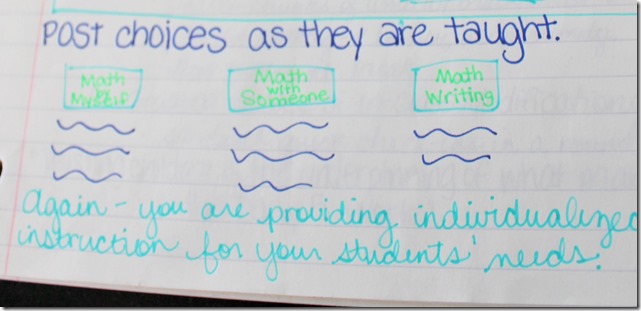 Post choices as they are taught.
Math
by
Myself
Math
with
Someone
Math
Writing
Again - you are providing individualized
instruction for your students' needs.